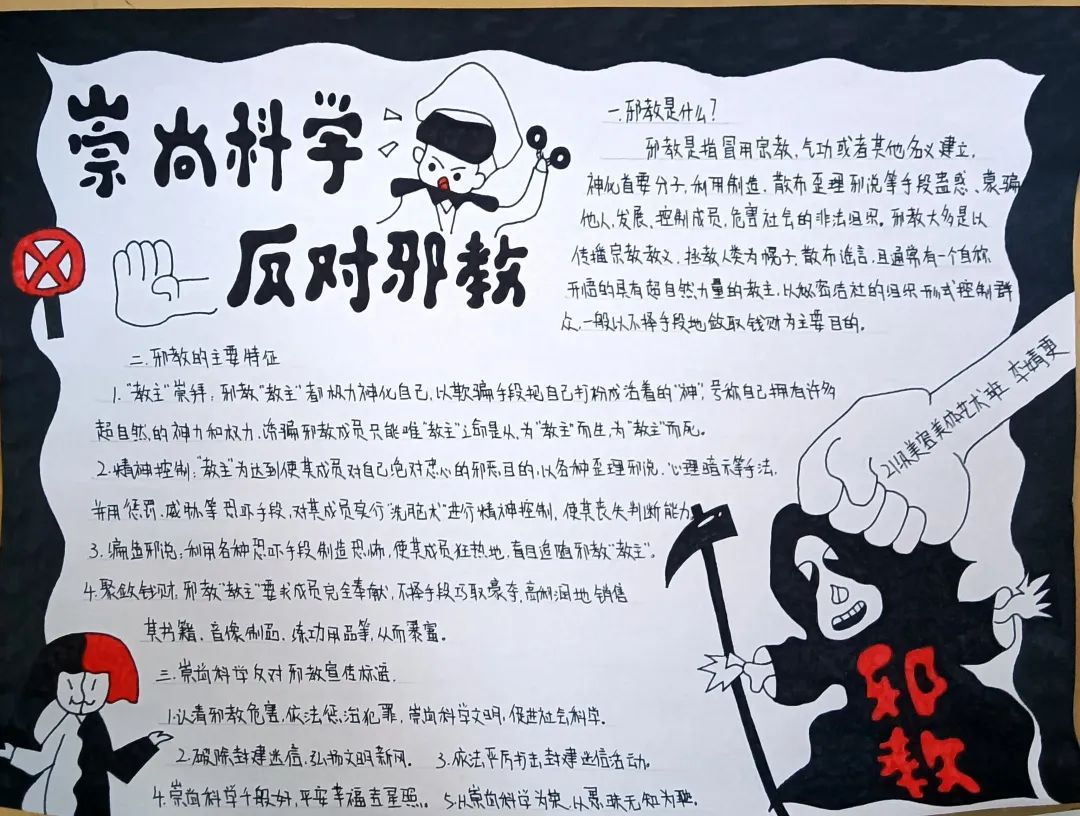 崇尚科学
反对邪教
一.邪教是什么?
邪教是指冒用宗教,气功或者其他名义建立,
神化首要分子,利用制造、散布歪理邪说等手段蛊惑、蒙骗
他人,发展、控制成员,危害社会的非法组织。邪教大多是以
传播宗教教义、拯救人类为幌子,散布谣言,且通常有一个自称
开悟的具有超自然力量的教主,以秘密结社的组织形式控制群
众,一般以不择手段地敛取钱财为主要目的。
二.邪教的主要特征
1."教主"崇拜:邪教"教主"都极力神化自己,以欺骗手段把自己打扮成活着的"神",号称自己拥有许多
超自然的神力和权力,诱骗邪教成员只能唯"教主"之命是从,为"教主"而生,为"教主"而死。
2.精神控制:"教主"为达到使其成员对自己绝对忠心的邪恶目的,以各种歪理邪说、心理暗示等手法,
并用惩罚、威胁等恐吓手段,对其成员实行"洗脑术"进行精神控制,使其丧失判断能力
3.编造邪说:利用各种恐吓手段制造恐怖,使其成员狂热地,盲目追随邪教"教主"。
4.聚敛钱财:邪教"教主"要求成员完全奉献,不择手段巧取豪夺,高利润地销售
其书籍、音像制品、练功用品等,从而暴富。
三.崇尚科学反对邪教宣传标语.
1.认清邪教危害,依法惩治犯罪,崇尚科学文明,促进社会科学。
2.破除封建迷信,弘扬文明新风。 3.依法严厉打击封建迷信活动。
4.崇尚科学千般好,平安幸福吉星照。 5.以崇尚科学为荣,以愚昧无知为耻。
21级美容美体艺术班 李婧雯
邪
教